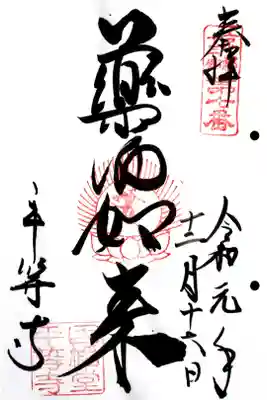 奉拝
令和元年
十二月十六日
薬師如来
平等寺